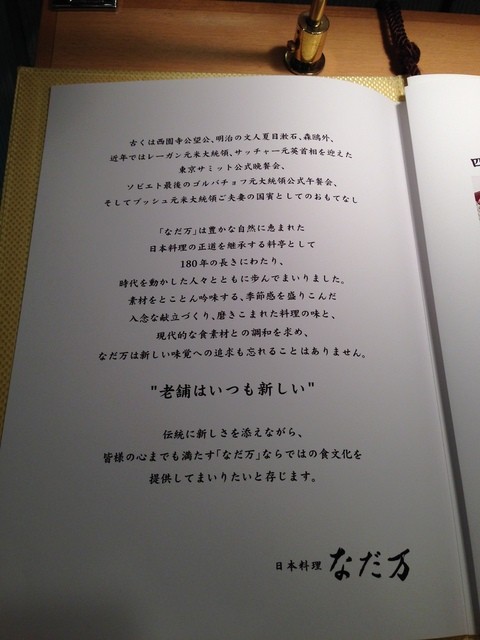 古くは西園寺公望公、明治の文人夏目漱石、森鴎外、
近年ではレーガン元米大統領、サッチャー元英首相を迎えた
東京サミット公式晩餐会、
ソビエト最後のゴルバチョフ元大統領公式午餐会、
そしてブッシュ元米大統領ご夫妻の国賓としてのおもてなし
「なだ万」は豊かな自然に恵まれた
日本料理の正道を継承する料亭として
180年の長きにわたり、
時代を動かした人々とともに歩んでまいりました。
素材をとことん吟味する、季節感を盛りこんだ
入念な献立づくり、磨きこまれた料理の味と、
現代的な食素材との調和を求め、
なだ万は新しい味覚への追求も忘れることはありません。
"老舗はいつも新しい"
伝統に新しさを添えながら、
皆様の心までも満たす「なだ万」ならではの食文化を
提供してまいりたいと存じます。
日本料理 なだ万